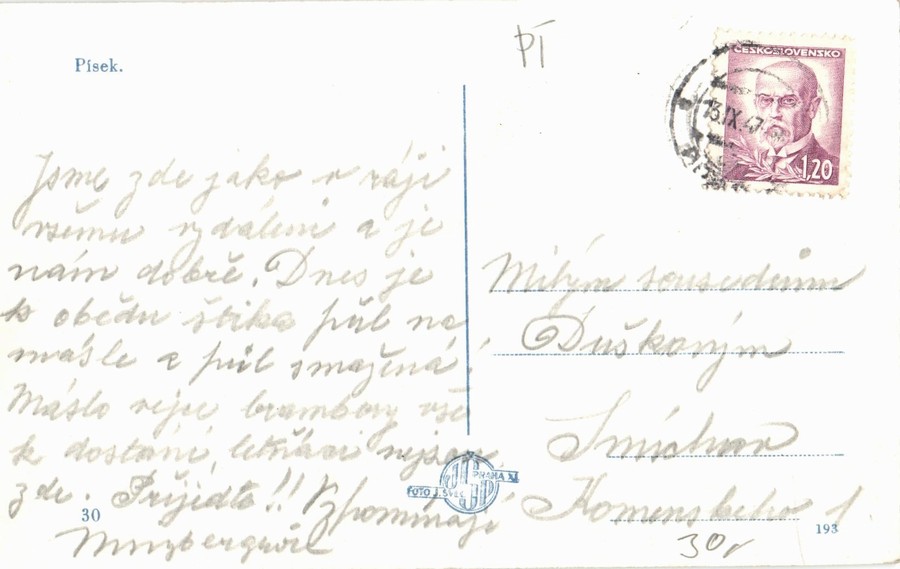 Písek.
PÍ
ČESKOSLOVENSKO
13.IX.47
1,20
Jsme zde jako v ráji
všemu vzdáleni a je
nám dobře. Dnes je
k obědu štika půl na
másle a půl smažená!
Máslo vejce brambory vše
k dostání, letňáci nejsou
zde. Přijeďte!! Vzpomínají
Milým sousedům
Duškovým
Smíchov
Komenského 1
FOTO J. ŠVEC PRAHA XI
30
193
30,-